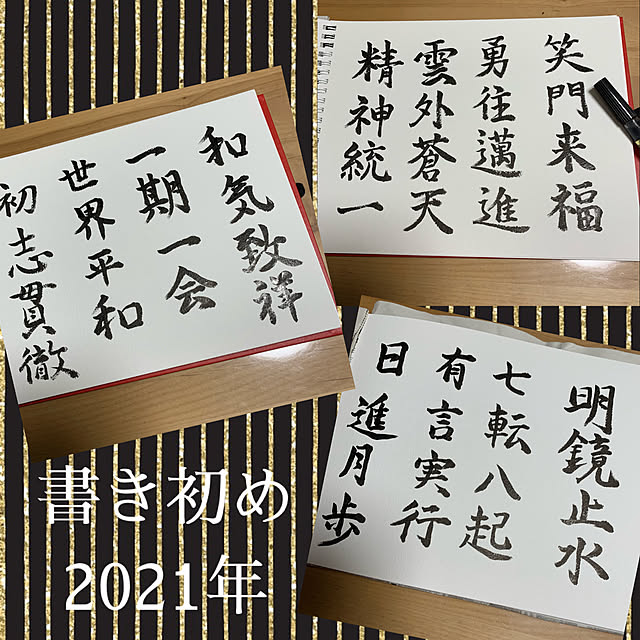 和気致祥
一期一会
世界平和
初志貫徹
笑門来福
勇往邁進
雲外蒼天
精神統一
明鏡止水
七転八起
有言実行
日進月歩
書き初め
2021年